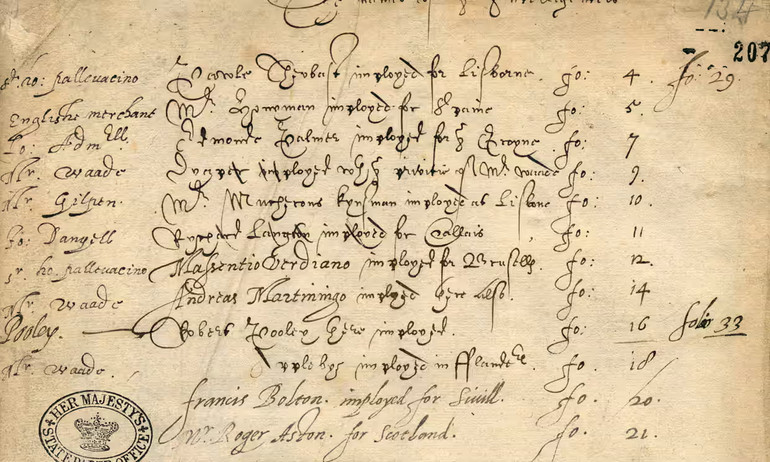 The names of ye Intelligencers
134
207
Sr. ho: pallevacino Pawle Theobast imployed for Lisborne. fo: 4. fo: 29.
Englishe merchant Mr. imployed for Spaine fo: 5.
Lo: Admll. Edmonde Palmer imployed for ye Groyne fo: 7
Mr. Waade imployed wth ye privitie of Mr. Waade fo: 9.
Mr. Gilpen. Mr. kynsman imployed at Lisbone fo: 10.
Jo: Dangell Rychard Langton imployed for Callais fo: 11
Sr. ho. pallevacino Massentio Verdiano imployed for Brusells. fo: 12.
Mr. Waade Andreas Martiningo imployed here also. fo: 14
Pooley. Robert Pooley here imployed. fo: 16 folio 33
Mr. Waade. imployed in fflandrs. fo. 18.
francis Bolton. imployed for Sivill. fo. 20.
Mr. Roger Aston. for Scotland. fo. 21.
HER MAJESTY'S STATE PAPER OFFICE